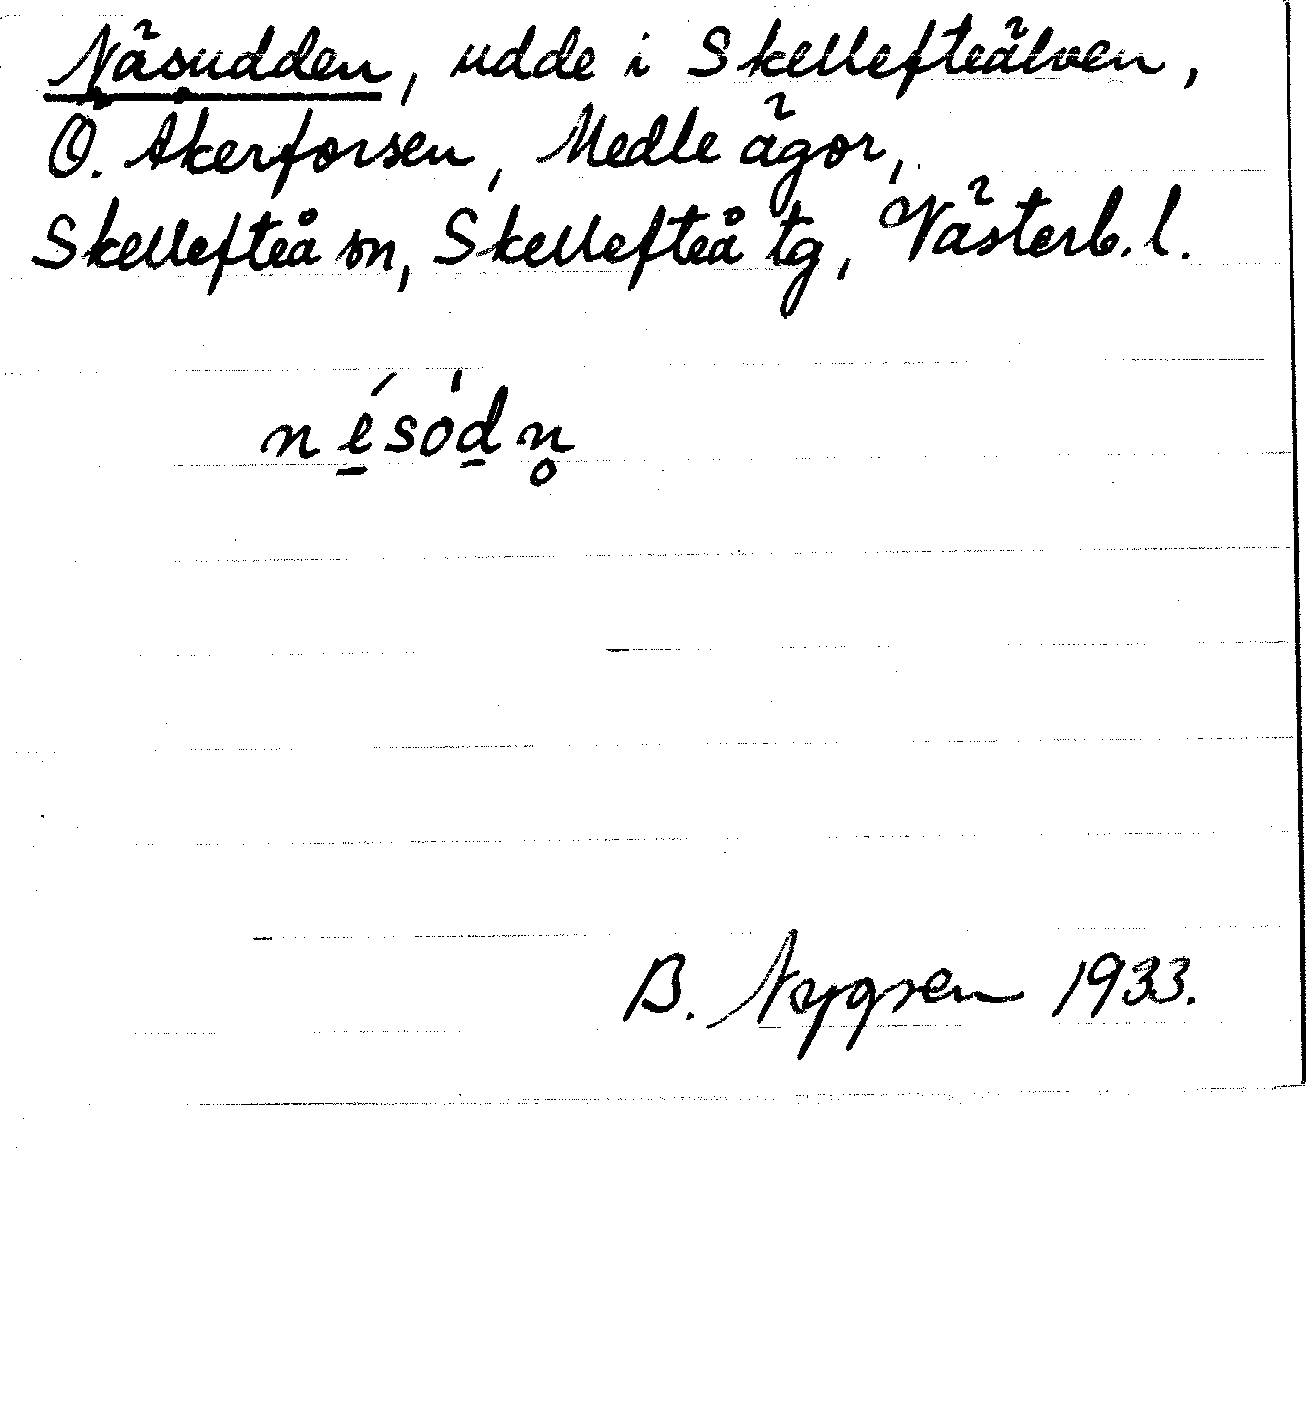 Näsudden, udde i Skellefteälven,
Ö. Åkerforsen, Medle ägor,
Skellefteå sn, Skellefteå tg, Västerb. l.
né̱sòḏn̥
B. Nygren 1933.